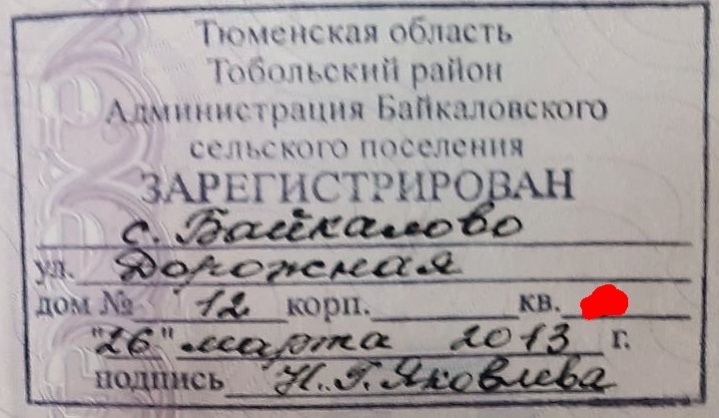 Тюменская область
Тобольский район
Администрация Байкаловского
сельского поселения
ЗАРЕГИСТРИРОВАН
с. Байкалово
ул. Дорожная
дом № 12 корп. кв.
"26" марта 2013 г.
подпись Н.Г. Яковлева